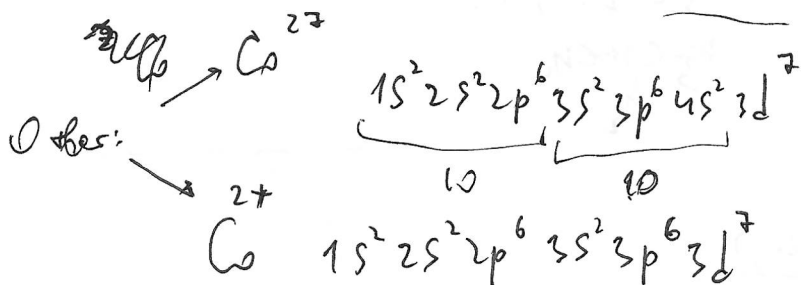 Co²⁷ 1s² 2s² 2p⁶ 3s² 3p⁶ 4s² 3d⁷
Other:
10 10
Co²⁺ 1s² 2s² 2p⁶ 3s² 3p⁶ 3d⁷